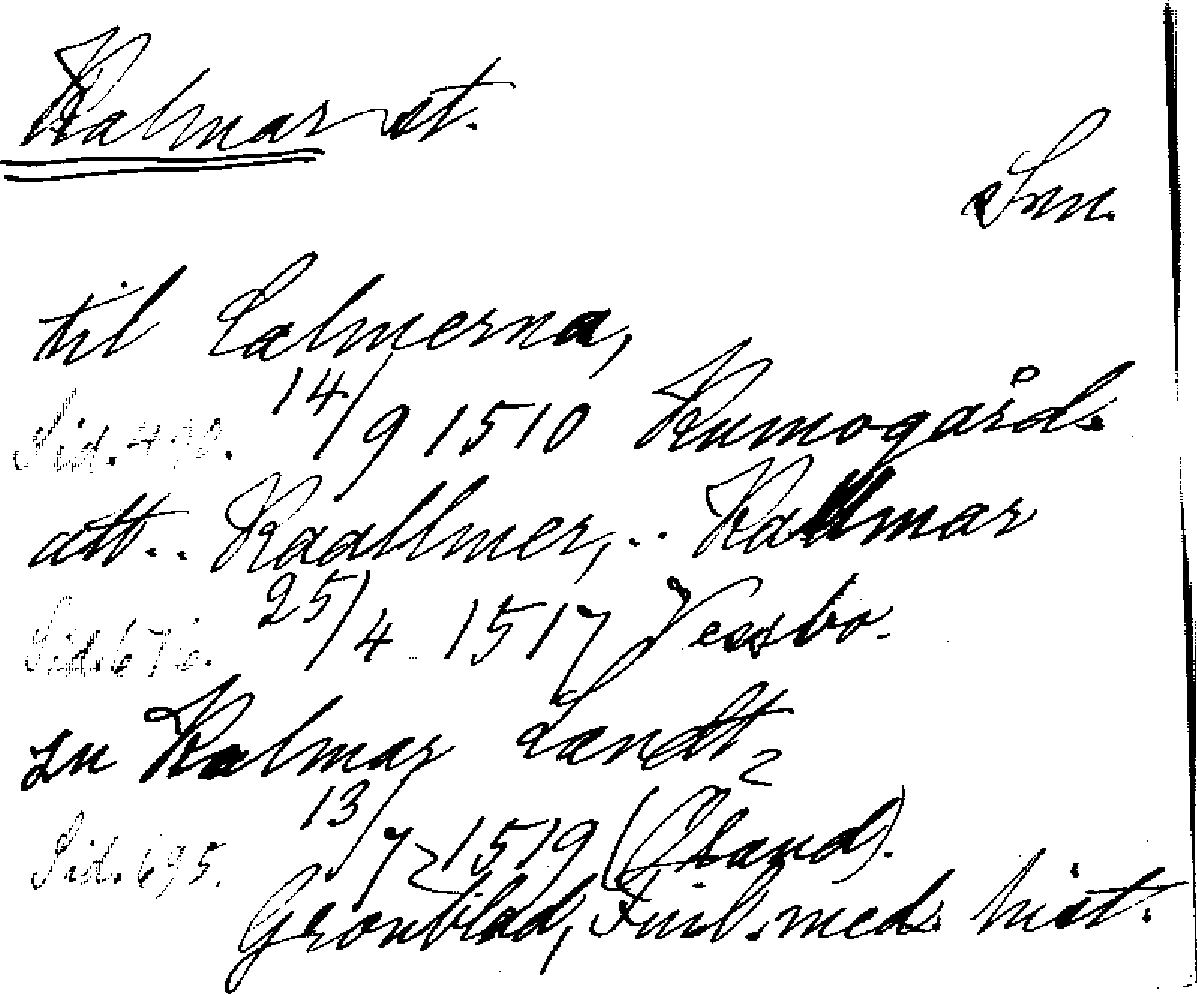 Kalmar st.
Sm.
til Calmerna,
Sid. 490. 14/9 1510 Kumogårds
att .. Kaallmer, .. Kallmar
Sid. 676. 25/4 1517 Vessbo.
zu Kalmar Landt,
Sid. 695. 13/7 1519 (Öland).
Grönblad, Finl. meds hist.